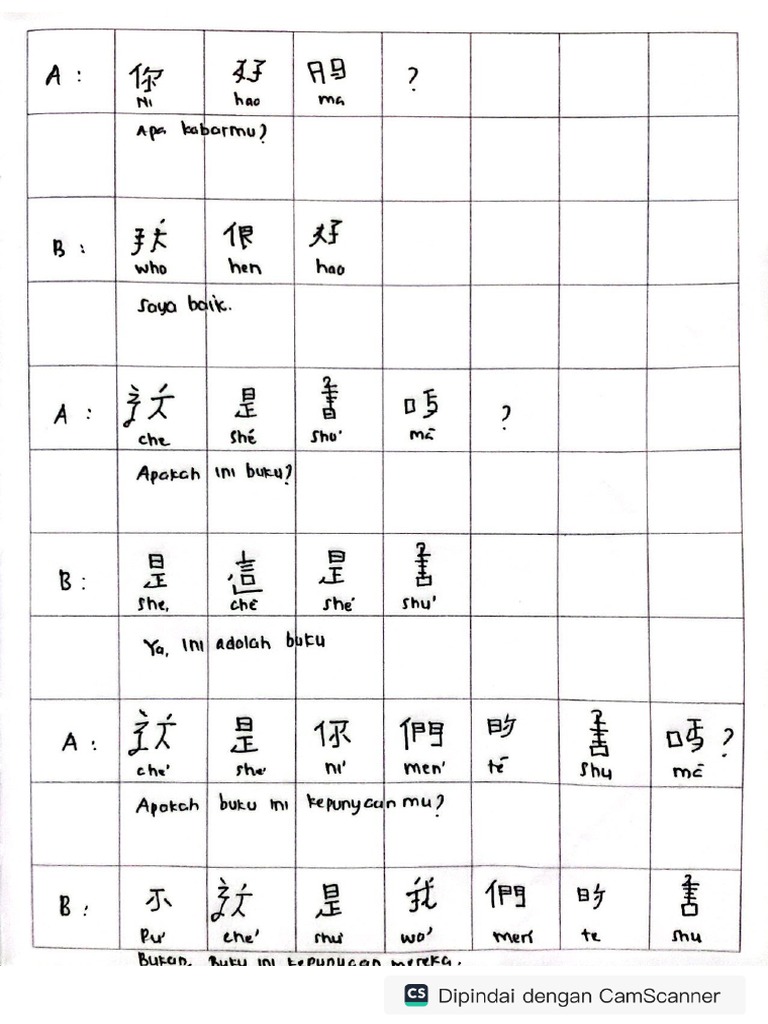 A : 你 好 嗎 ?
Ni hao ma
Apa kabarmu?
B : 我 很 好
who hen hao
Saya baik.
A : 這 是 書 嗎 ?
che shé shu' mā
Apakah ini buku?
B : 是 這 是 書
she, chē she' shu'
Ya, ini adalah buku
A : 這 是 你 們 的 書 嗎 ?
che' she' ni' men' tē shu mā
Apakah buku ini kepunyaan mu?
B : 不 這 是 我 們 的 書
Pu' che' shu' wo' men' te shu
Bukan, Buku ini kepunyaan mereka.
CS Dipindai dengan CamScanner